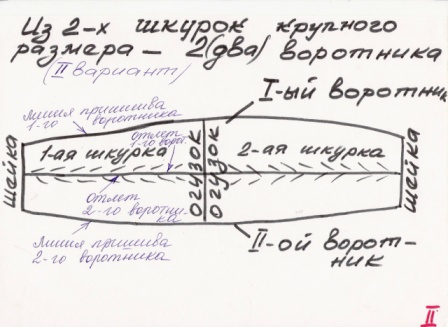 Из 2-х шкурок крупного
размера — 2(два) воротника
(II вариант)
I-ый воротник
линия пришива
1-го воротника
отлет
1-го ворот.
1-ая шкурка
2-ая шкурка
Шейка
огузок
огузок
шейка
отлет
2-го воротни-
ка
Линия пришива
2-го воротника
II-ой ворот-
ник
II